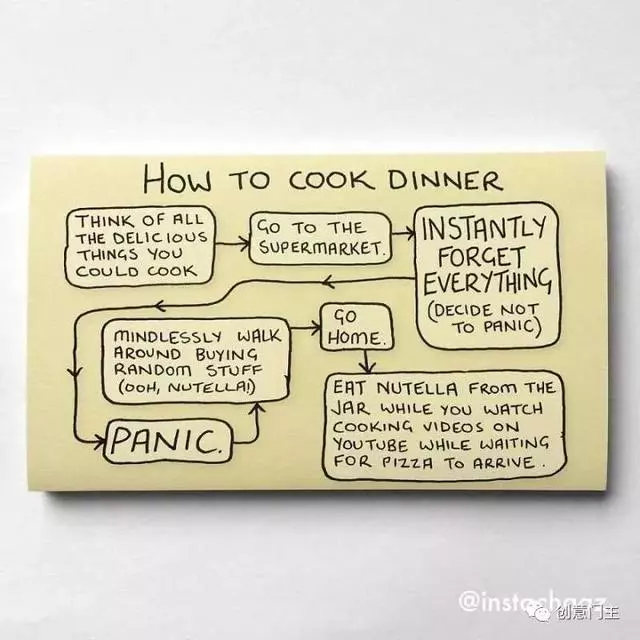 HOW TO COOK DINNER
THINK OF ALL
THE DELICIOUS
THINGS YOU
COULD COOK
GO TO THE
SUPERMARKET.
INSTANTLY
FORGET
EVERYTHING
(DECIDE NOT
TO PANIC)
PANIC.
MINDLESSLY WALK
AROUND BUYING
RANDOM STUFF
(OOH, NUTELLA!)
GO
HOME.
EAT NUTELLA FROM THE
JAR WHILE YOU WATCH
COOKING VIDEOS ON
YOUTUBE WHILE WAITING
FOR PIZZA TO ARRIVE.
创意门主